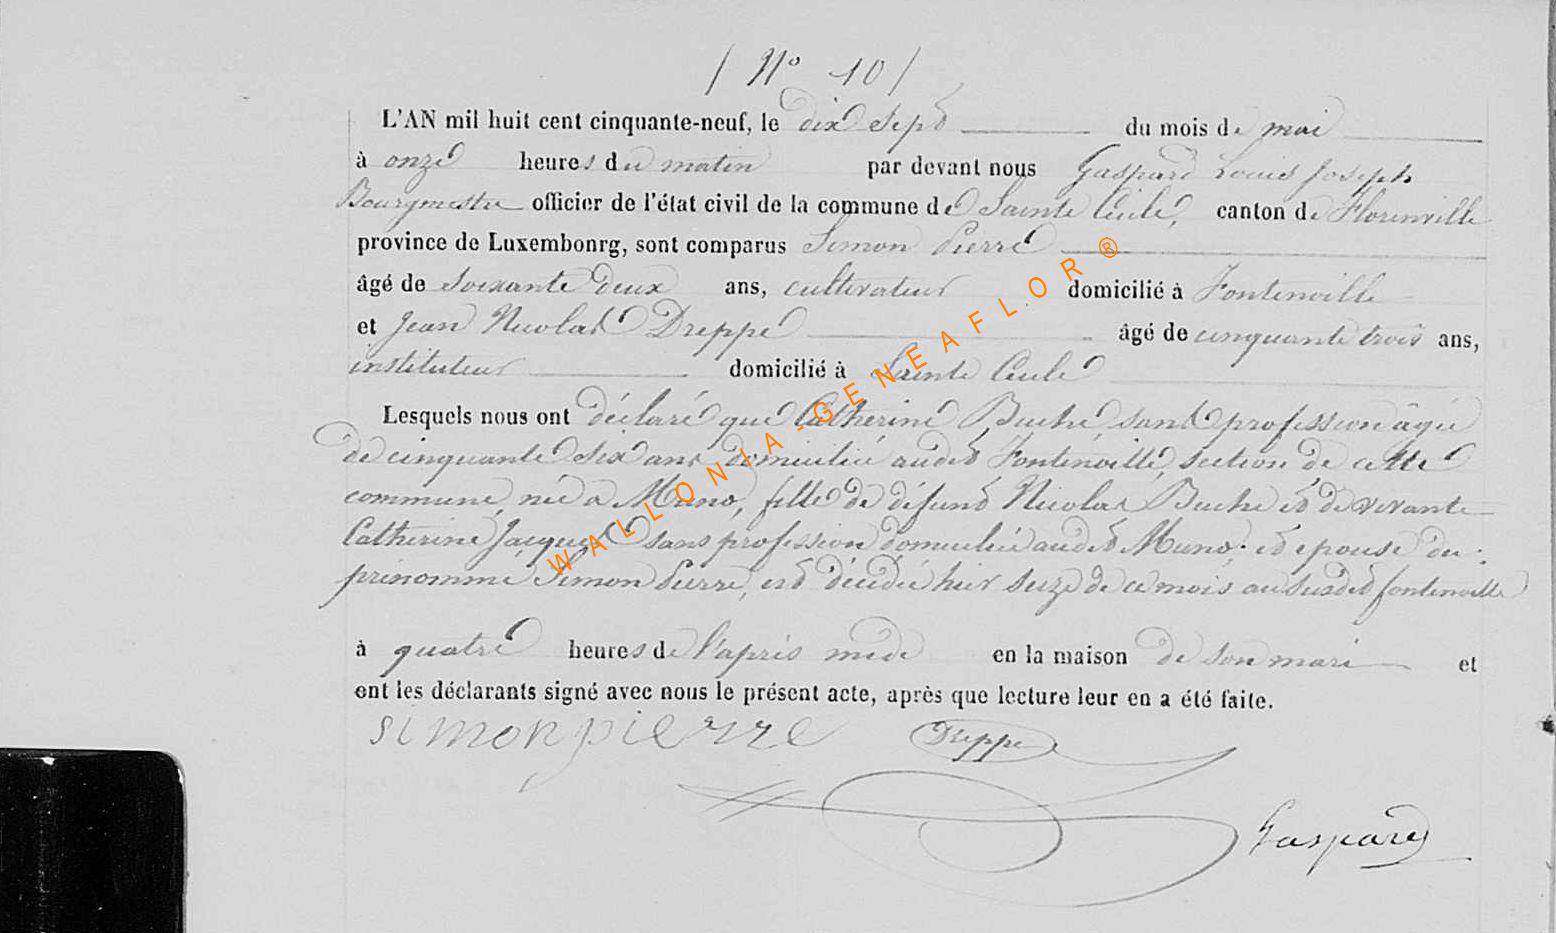 / N° 10 /
L'AN mil huit cent cinquante-neuf, le dix Sept du mois de mai
à onze heures du matin par devant nous Gaspard Louis Joseph
Bourgmestre officier de l'état civil de la commune de Sainte Cécile, canton de Florenville
province de Luxembonrg, sont comparus Simon Pierre
âgé de Soixante deux ans, cultivateur domicilié à Fontenoille
et Jean Nicolas Dreppe âgé de cinquante trois ans,
instituteur domicilié à Sainte Cécile
Lesquels nous ont déclaré que Catherine Buché sans profession âgée
de cinquante Six ans domiciliée audit Fontenoille, section de cette
commune, née a Muno, fille de défunt Nicolas Buche et de vivante
Catherine Jacques sans profession domiciliée audit Muno. et epouse du
prénommé Simon Pierre, est décédée hier seize de ce mois au susdit fontenoille
à quatre heures de l'après midi en la maison de son mari et
ont les déclarants signé avec nous le présent acte, après que lecture leur en a été faite.
simon pierre Dreppe
Gaspard
WALLONIA-GENEAFLOR ®